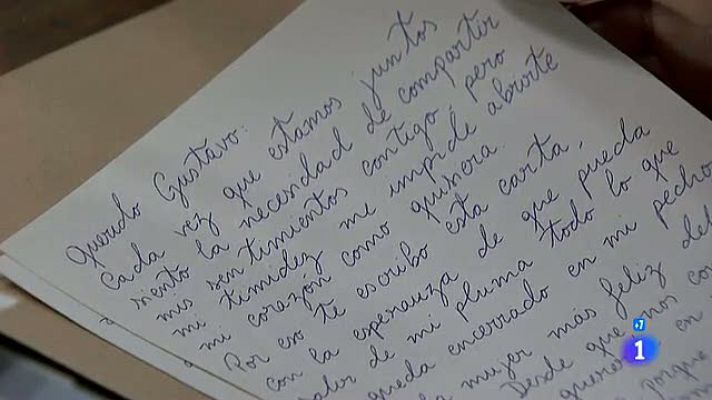 Querido Gustavo:
Cada vez que estamos juntos
siento la necesidad de compartir
mis sentimientos contigo, pero
mi timidez me impide abrirte
mi corazón como quisiera.
Por eso te escribo esta carta,
con la esperanza de que pueda
salir de mi pluma todo lo que
queda encerrado en mi pecho
la mujer más feliz del
Desde que nos
queremos en
porque
+7
1